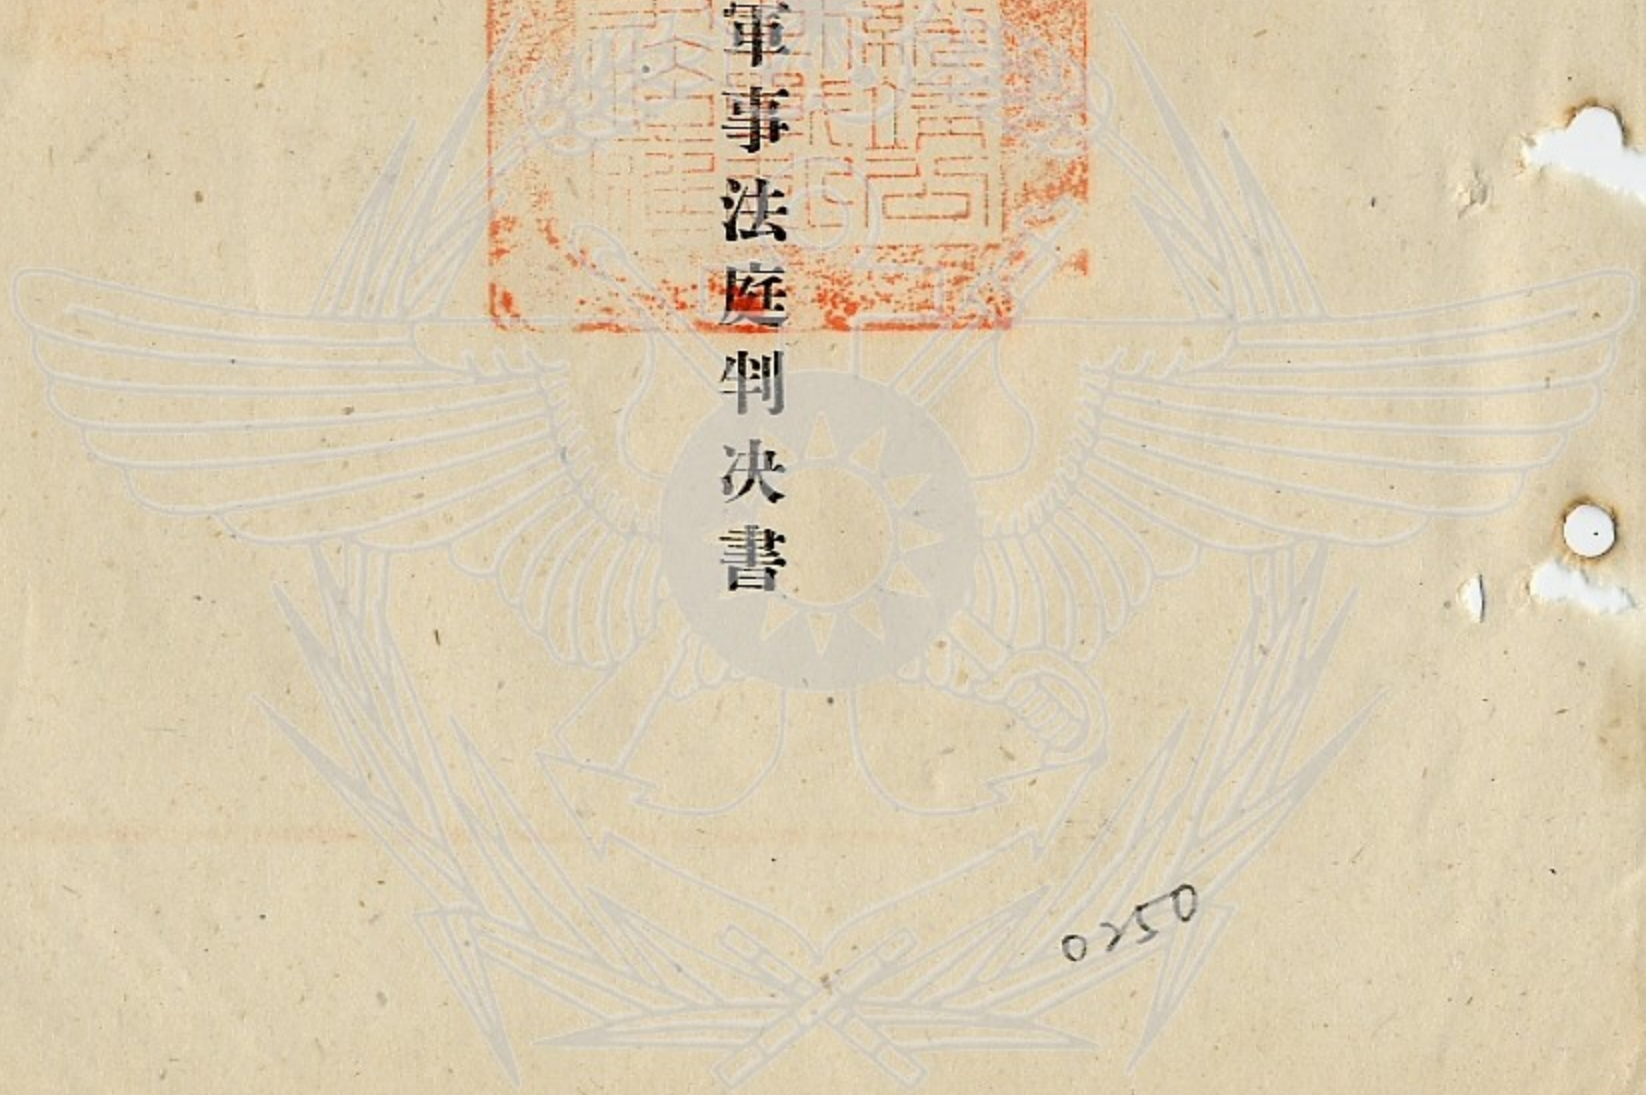 軍事法庭判決書
0250